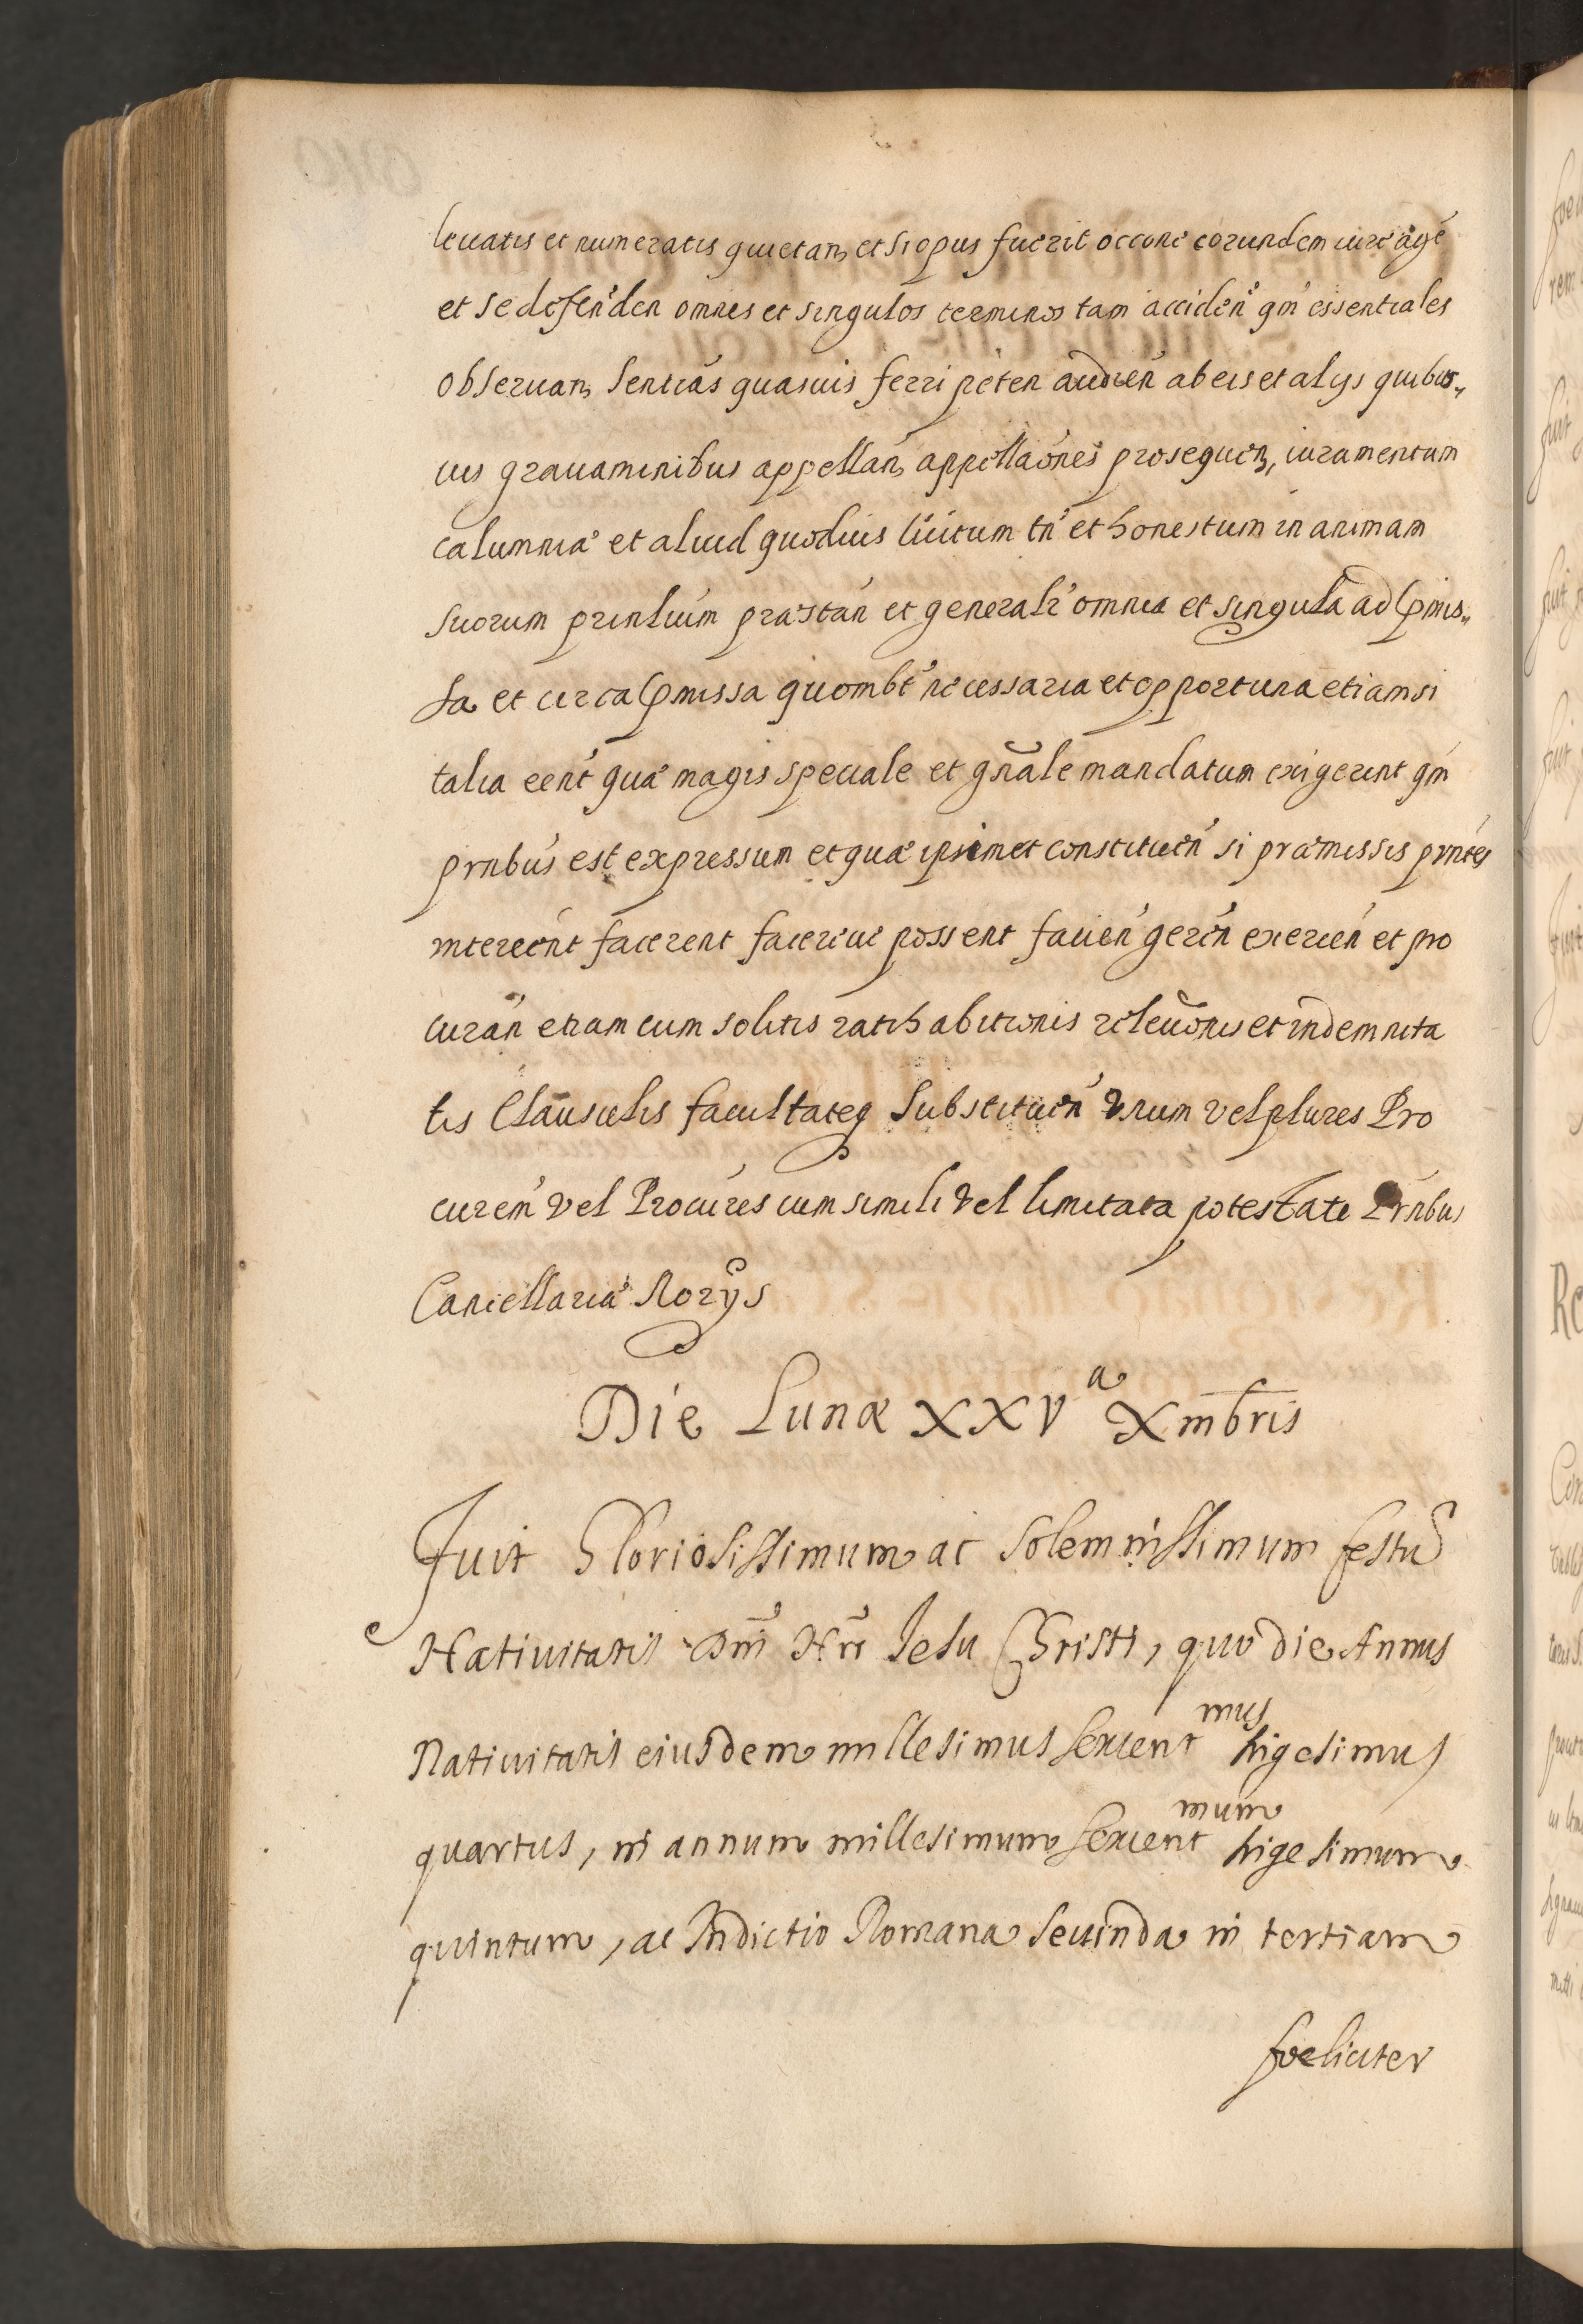 levatis et numeratis quietan, et si opus fuerit occōne eorundem iure agé
et se defen'den omnes et singulos terminos tam acciden' qm' essentiales
observan, Sentias quasvis ferri peten audien ab eis et alijs quibus„
vis gravaminibus appellan, appellaōnes prosequen, iuramentum
calumniæ et aliud quodvis licitum tn' et honestum in animam
suorum prinlium præstan et generalr' omnia et singula ad pmis„
sa et circa pmissa quomlt' necessaria et opportuna etiam si
talia eent' quæ magis speciale et gñale mandatum exigerent qm'
prnbus est expressum et quæ ipsimet constituen' si præmissis prntes
intereent facerent facereve possent facien' geren' exercen' et pro
curan' etiam cum solitis ratihabitionis relevōnis et indemnita
tis Clausulis facultateq substituen' vnum vel plures Pro
curem' vel Procures cum simili vel limitata potestate Prnbus
Cancellariæ Norijs
Die Lunæ XXV<sup>a</sup> Xm̄bris
Fuit Gloriosissimum ac Solemnissimum festū
Nativitatis Dñi Nri Iesu Christi, quo die Annus
Nativitatis eiusdem millesimus sexcent<sup>mus</sup> vigesimus
quartus, in annum millesimum sexcent<sup>mum</sup> vigesimum
quintum, ac Indictio Romana Secunda in tertiam
foeliciter